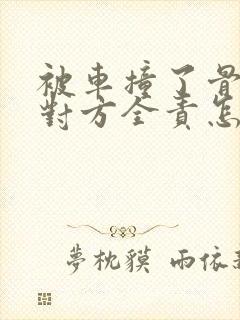 被車撞了骨
對方全責怎
夢枕貘 雨依